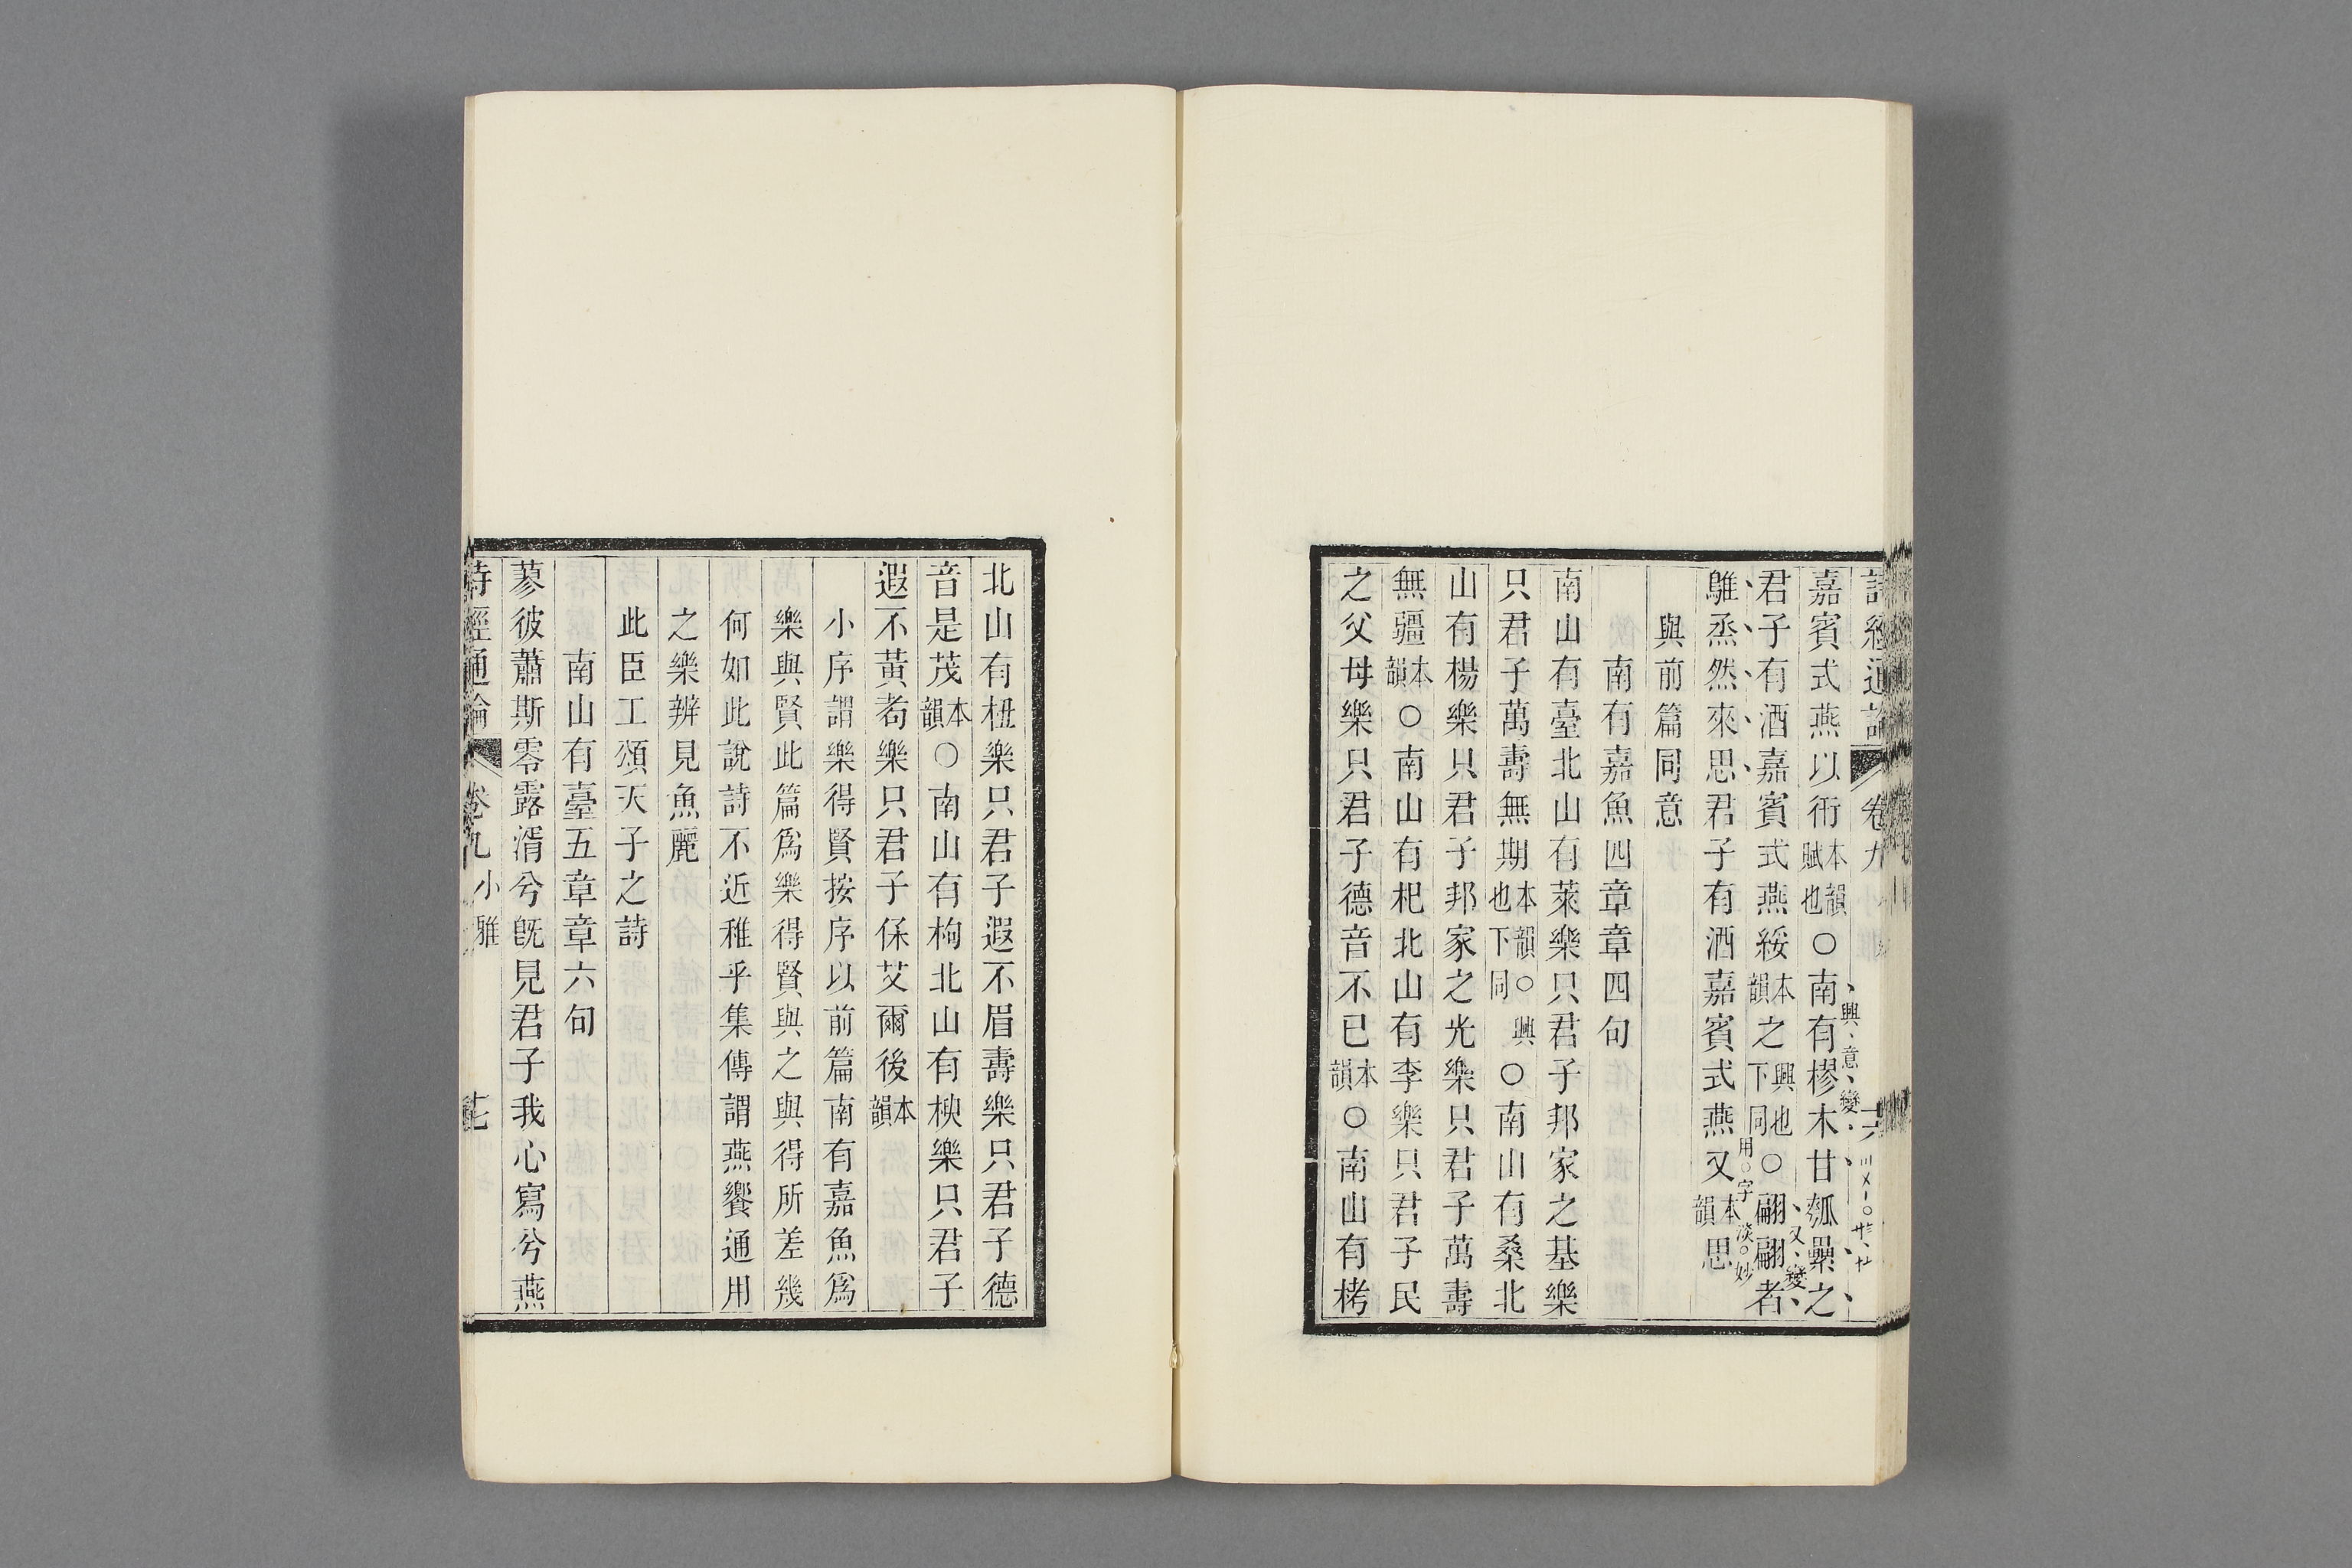 詩經通論 卷九 十六
嘉賓式燕以衎本韻賦也○南有樛木甘瓠纍之
興意變
君子有酒嘉賓式燕綏本韻之興也下同○翩翩者
又變
鵻烝然來思君子有酒嘉賓式燕又本韻思
用字淡妙
與前篇同意
南有嘉魚四章章四句
南山有臺北山有萊樂只君子邦家之基樂
只君子萬壽無期本韻○興也下同○南山有桑北
山有楊樂只君子邦家之光樂只君子萬壽
無疆本韻○南山有杞北山有李樂只君子民
之父母樂只君子德音不已本韻○南山有栲
北山有杻樂只君子遐不眉壽樂只君子德
音是茂本韻○南山有枸北山有楰樂只君子
遐不黃耇樂只君子保艾爾後本韻
小序謂樂得賢按序以前篇南有嘉魚爲
樂與賢此篇爲樂得賢與之與得所差幾
何如此說詩不近稚乎集傳謂燕饗通用
之樂辨見魚麗
此臣工頌天子之詩
南山有臺五章章六句
蓼彼蕭斯零露湑兮旣見君子我心寫兮燕
詩經通論 卷九 小雅 十七